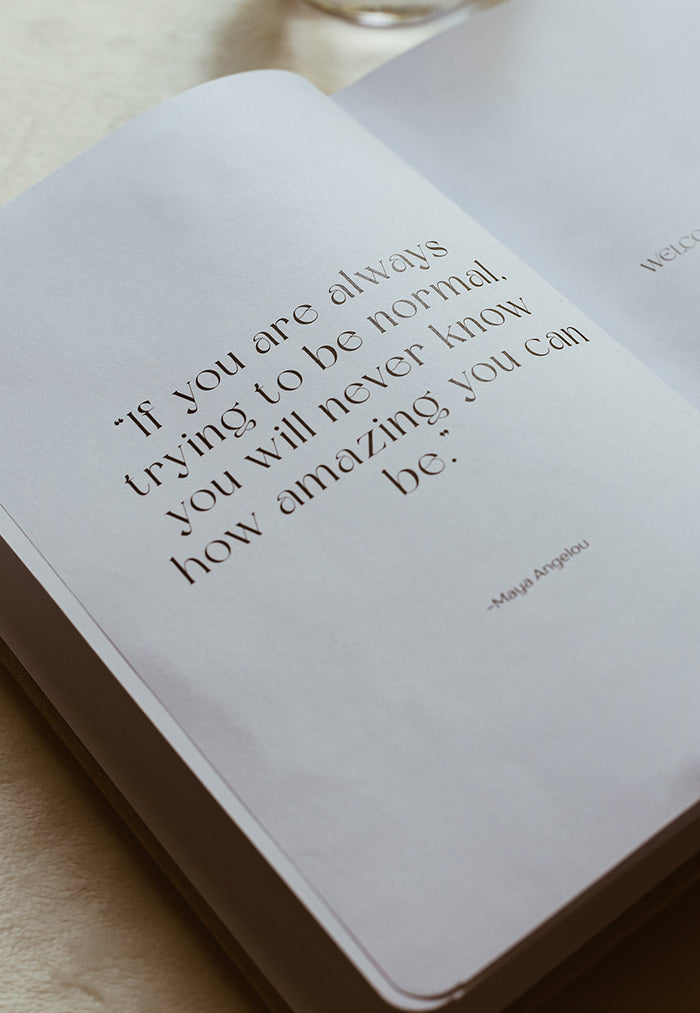 “If you are always
trying to be normal,
you will never know
how amazing you can
be.”
–Maya Angelou